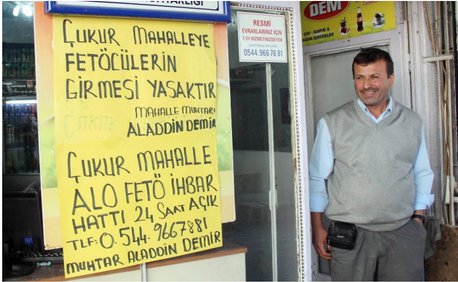 MUHTARLIĞI
ÇUKUR MAHALLEYE
FETÖCÜLERİN
GİRMESİ YASAKTIR
MAHALLE MUHTARI
ALADDİN DEMİR
ÇUKUR MAHALLE
ALO FETÖ İHBAR
HATTI 24 SAAT AÇIK
TLF: 0.544.9667881
MUHTAR ALADDİN DEMİR
RESMİ
EVRAKLARINIZ İÇİN
7/24 HİZMETİNİZDEYİM
0544.966 78 81
DEM